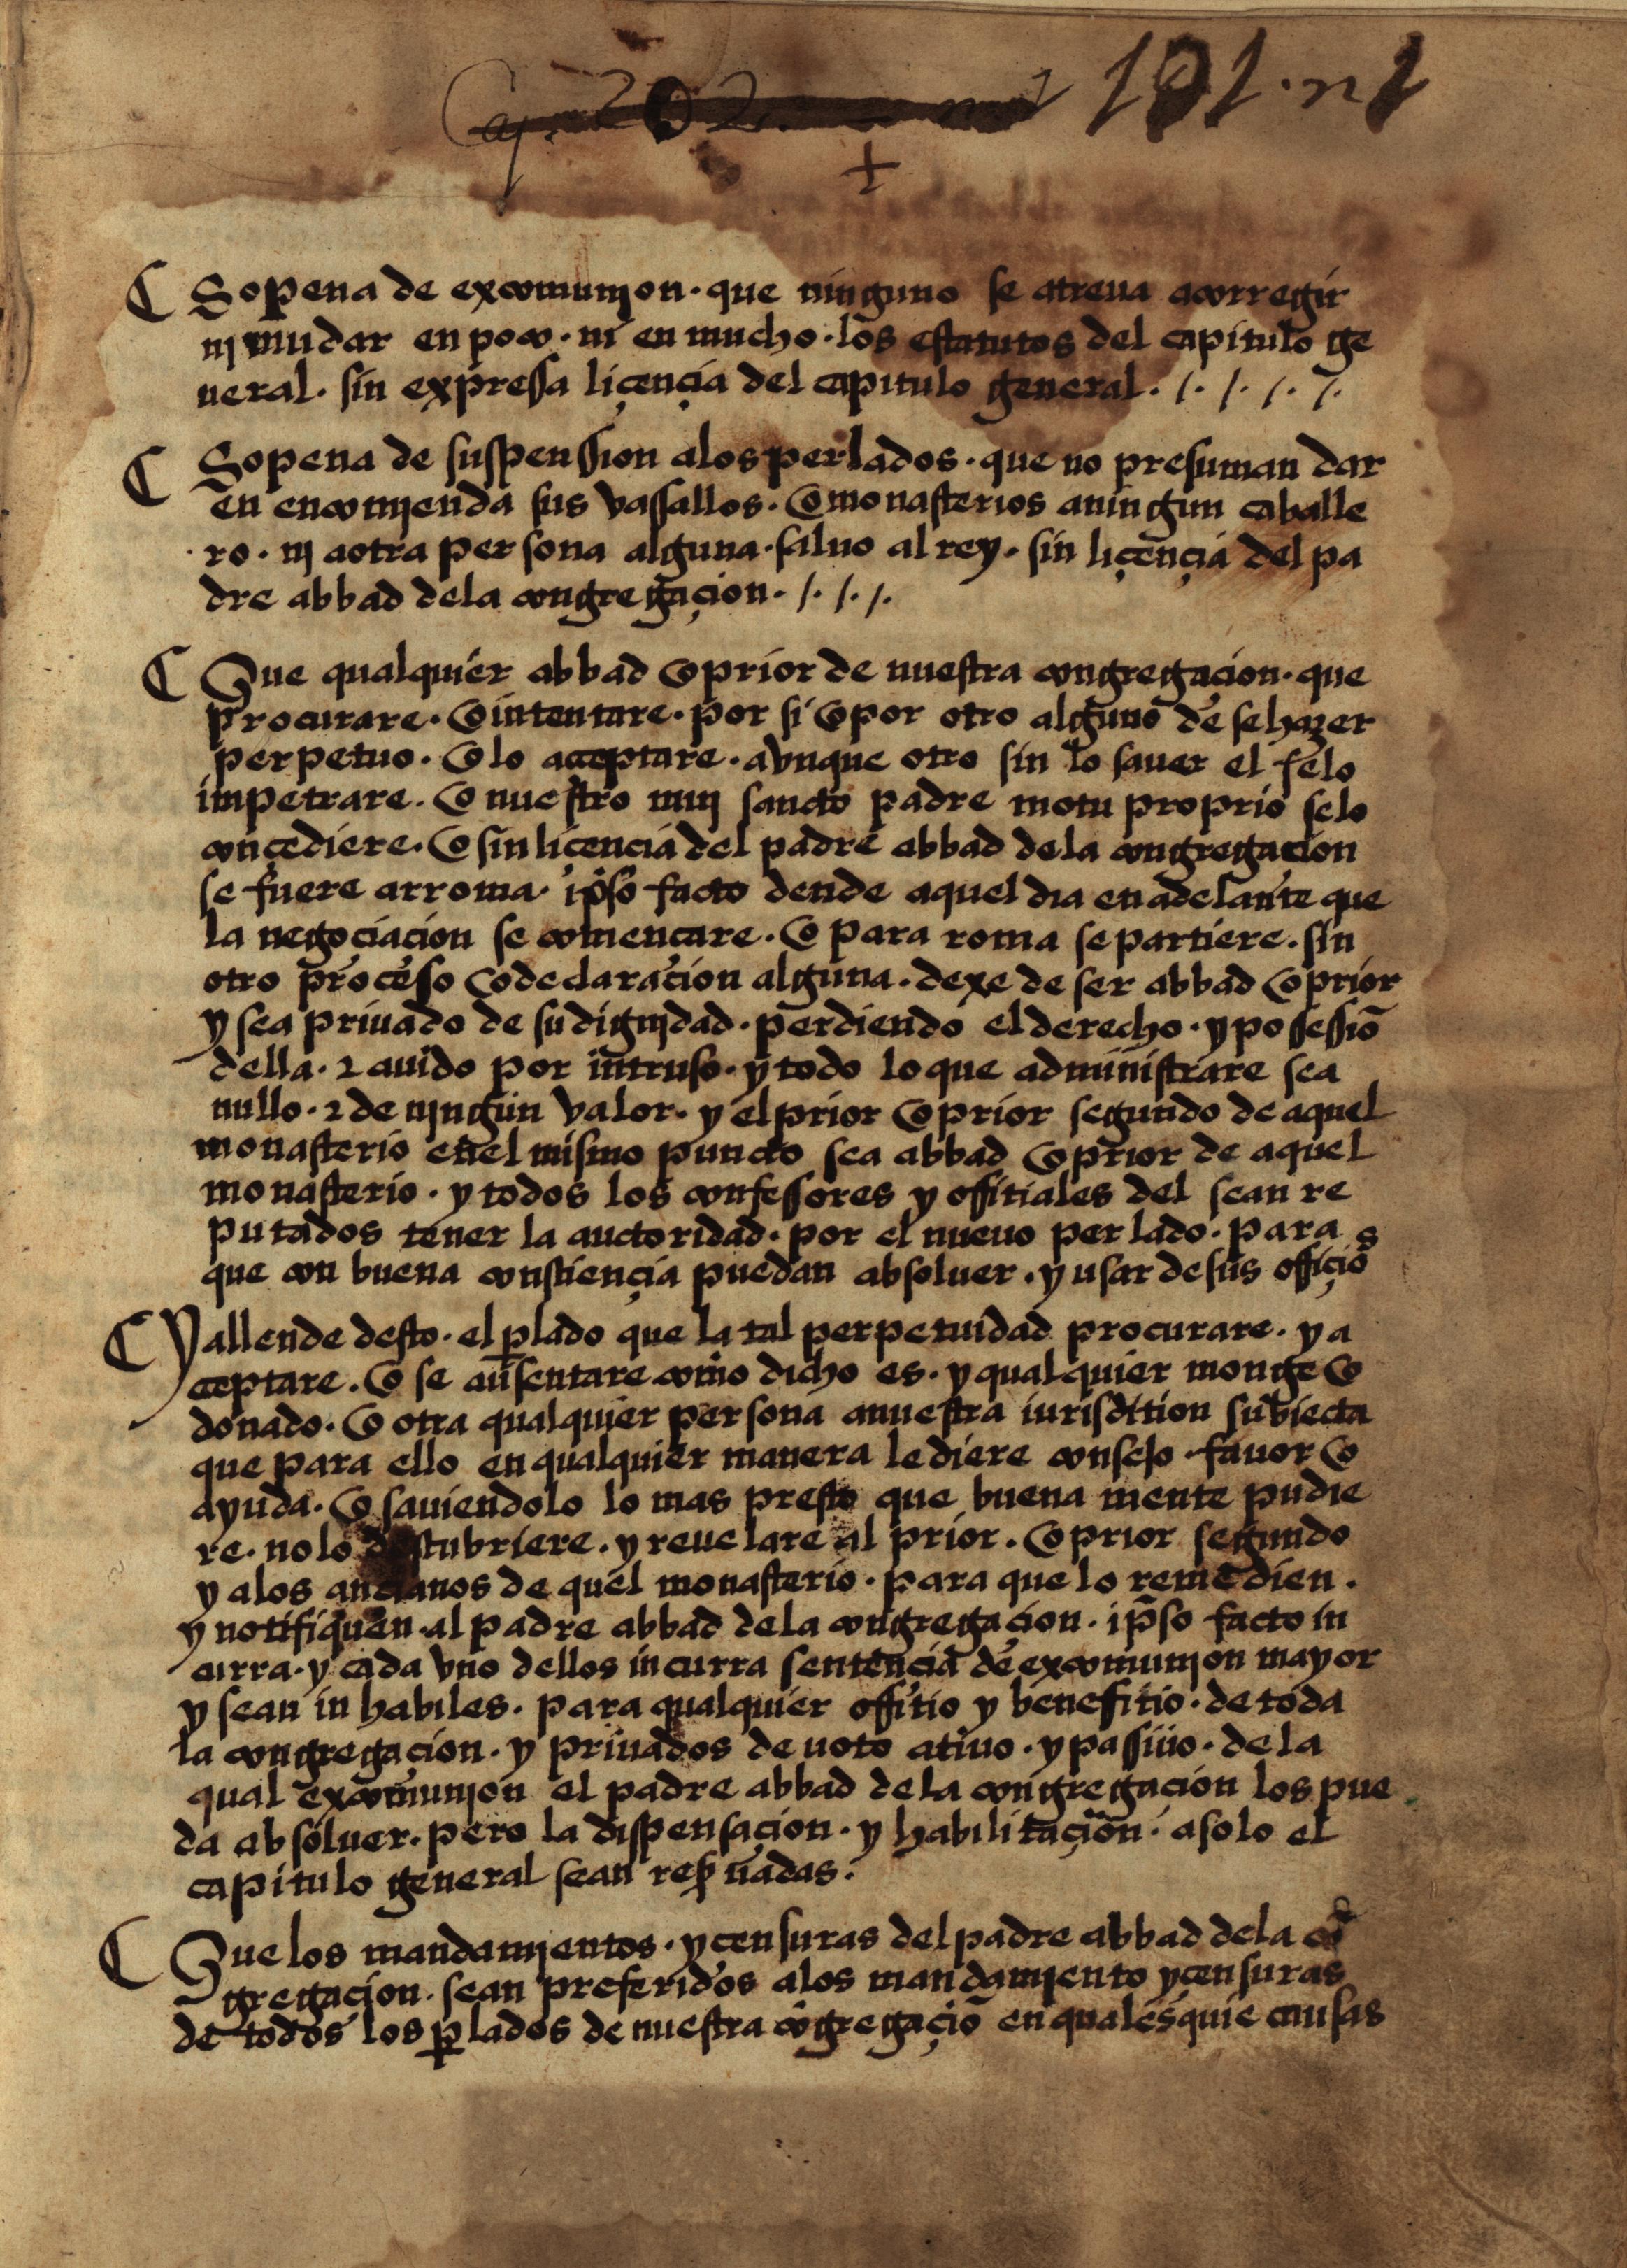 Caj. 202 101. n 1
+
Sopena de excomunjon · que ninguno se atreua acorregir
nj mudar en poco · ni en mucho · los estatutos del capitulo ge
neral · sin expressa liçençia del capitulo general · /. /. /. /.
Sopena de suspenssion alos perlados · que no presuman dar
en encomjenda sus vassallos · o monasterios aningun caballe
ro · nj aotra persona alguna · saluo al rey · sin liçençia del pa
dre abbad dela congregaçion · /. /. /.
Que qualquier abbad o prior de nuestra congregacion · que
procurare · o intentare · por si o por otro alguno de se hazer
perpetuo · o lo acceptare · avnque otro sin lo sauer el selo
impetrare · o nuestro muj sancto padre motu proprio selo
conçediere · o sin licencia del padre abbad dela congregacion
se fuere arroma · ipso facto dende aquel dia en adelante que
la negociacion se comencare · o para roma se partiere · sin
otro proceso o declaracion alguna · dexe de ser abbad o prior
y sea priuado de su dignjdad · perdiendo el derecho · y possessiõ
della · 2 auido por intruso · y todo lo que administrare sea
nullo · 2 de njngun valor · y el prior o prior segundo de aquel
monasterio enel mismo puncto sea abbad o prior de aquel
monasterio · y todos los confessores y offitiales del sean re
putados tener la auctoridad · por el nueuo perlado · para
que con buena constiençia puedan absoluer · y usar de sus offiçios
Y allende desto · el ꝑlado que la tal perpetuidad procurare · y a
cceptare · o se ausentare como dicho es · y qualquier monge o
donado · o otra qualquier persona anuestra iurisdition subiecta
que para ello en qualquier manera le diere consejo · fauor o
ayuda · o sauiendolo lo mas presto que buena mente pudie
re · nolo destubriere · y reuelare al prior · o prior segundo
y alos ancianos de quel monasterio · para que lo remedien ·
y notifiquen · al padre abbad dela congregacion · ipso facto in
curra · y cada vno dellos incurra sentencia de excomunjon mayor
y sean in habiles · para qualquier offitio y benefitio · de toda
la congregacion · y priuados de uoto atiuo · y passiuo · de la
qual excomunjon el padre abbad de la congregacion los pue
da absoluer · pero la dispensaçion · y habilitaçion · asolo el
capitulo general sean resꝑuadas ·
Que los mandamjentos · y censuras del padre abbad dela cõ
gregacion · sean preferidos alos mandamjento y censuras
de todos los ꝑlados de nuestra cõgregaçiõ en qualesquie causas